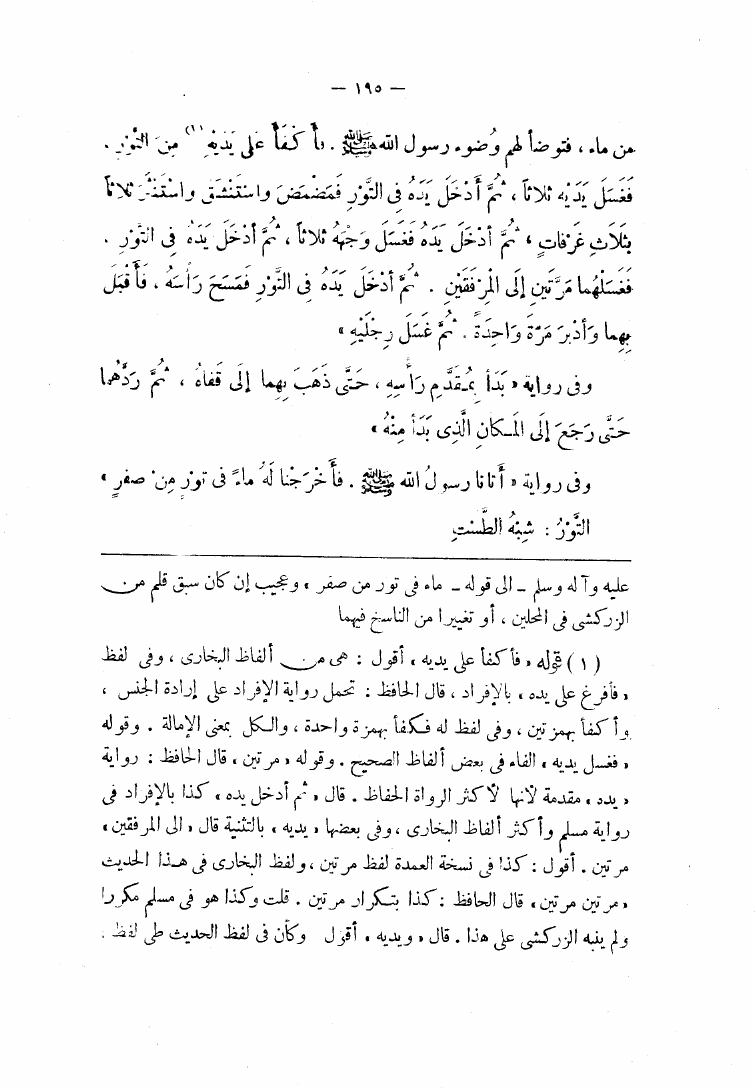 — ١٩٥ —
من ماء ، فتوضأ لهم وُضوء رسول الله ﷺ . فأَكْفَأَ عَلَى يَدَيْهِ (١) مِنَ التَّوْرِ .
فَغَسَلَ يَدَيْهِ ثَلاثاً ، ثُمَّ أَدْخَلَ يَدَهُ فِى التَّوْرِ فَمَضْمَضَ وَاسْتَنْشَقَ وَاسْتَنْثَرَ ثَلاثاً
بِثَلَاثِ غَرْفَاتٍ ، ثُمَّ أَدْخَلَ يَدَهُ فَغَسَلَ وَجْهَهُ ثَلاثاً ، ثُمَّ أَدْخَلَ يَدَهُ فِى التَّوْرِ .
فَغَسَلَهُما مَرَّتَينِ إِلَى المِرْفَقَيْنِ . ثُمَّ أَدْخَلَ يَدَهُ فِى التَّوْرِ فَمَسَحَ رَأْسَهُ ، فَأَقْبَلَ
بِهِما وَأَدْبَرَ مَرَّةً وَاحِدَةً . ثُمَّ غَسَلَ رِجْلَيْهِ »
وفى رواية « بَدَأَ بِمُقَدَّمِ رَأْسِهِ ، حَتَّى ذَهَبَ بِهِما إِلَى قَفَاهُ ، ثُمَّ رَدَّهُما
حَتَّى رَجَعَ إِلَى المَكانِ الَّذِى بَدَأَ مِنْهُ »
وفى رواية « أَتَانَا رسولُ الله ﷺ . فأَخْرَجْنَا لَهُ ماءً فى تَوْرٍ مِنْ صفرٍ »
التَّوْرُ : شِبْهُ الطَّسْتِ
عليه وآله وسلم ـ الى قوله ـ ماء فى تور من صفر » وعجيب إن كان سبق قلم من
الزركشى فى المحلين ، أو تغييرا من الناسخ فيهما
( ١ ) قوله « فأكفأ على يديه » أقول : هى من ألفاظ البخارى ، وفى لفظ
« فأفرغ على يده » بالإفراد ، قال الحافظ : تحمل رواية الإفراد على إرادة الجنس ،
وأكفأ بهمزتين ، وفى لفظ له فكفأ بهمزة واحدة ، والكل بمعنى الإمالة . وقوله
« فغسل يديه » الفاء فى بعض ألفاظ الصحيح . وقوله « مرتين » قال الحافظ : رواية
« يده » مقدمة لأنها لأكثر الرواة الحفاظ . قال « ثم أدخل يده » كذا بالإفراد فى
رواية مسلم وأكثر ألفاظ البخارى ، وفى بعضها « يديه » بالتثنية قال « الى المرفقين »
مرتين . أقول : كذا فى نسخة العمدة لفظ مرتين ، ولفظ البخارى فى هذا الحديث
« مرتين مرتين » قال الحافظ : كذا بتكرار مرتين . قلت وكذا هو فى مسلم مكررا
ولم ينبه الزركشى على هذا . قال « ويديه » أقول وكأن فى لفظ الحديث طى لفظ .